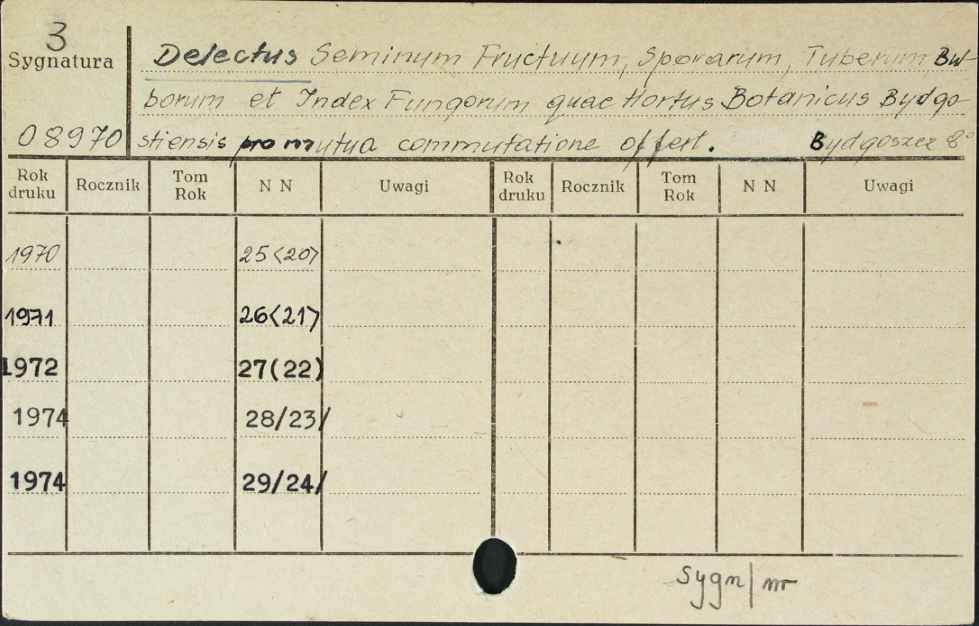 3
Sygnatura
08970
Delectus Seminum Fructuum, Sporarum, Tuberum, Bul-
borum et Index Fungorum quae Hortus Botanicus Bydgo-
stiensis pro mutua commutatione offert. Bydgoszcz 8°
Rok druku Rocznik Tom Rok N N Uwagi Rok druku Rocznik Tom Rok N N Uwagi
1970 25<20>
1971 26<21>
1972 27(22)
1974 28/23/
1974 29/24/
Sygn/nr